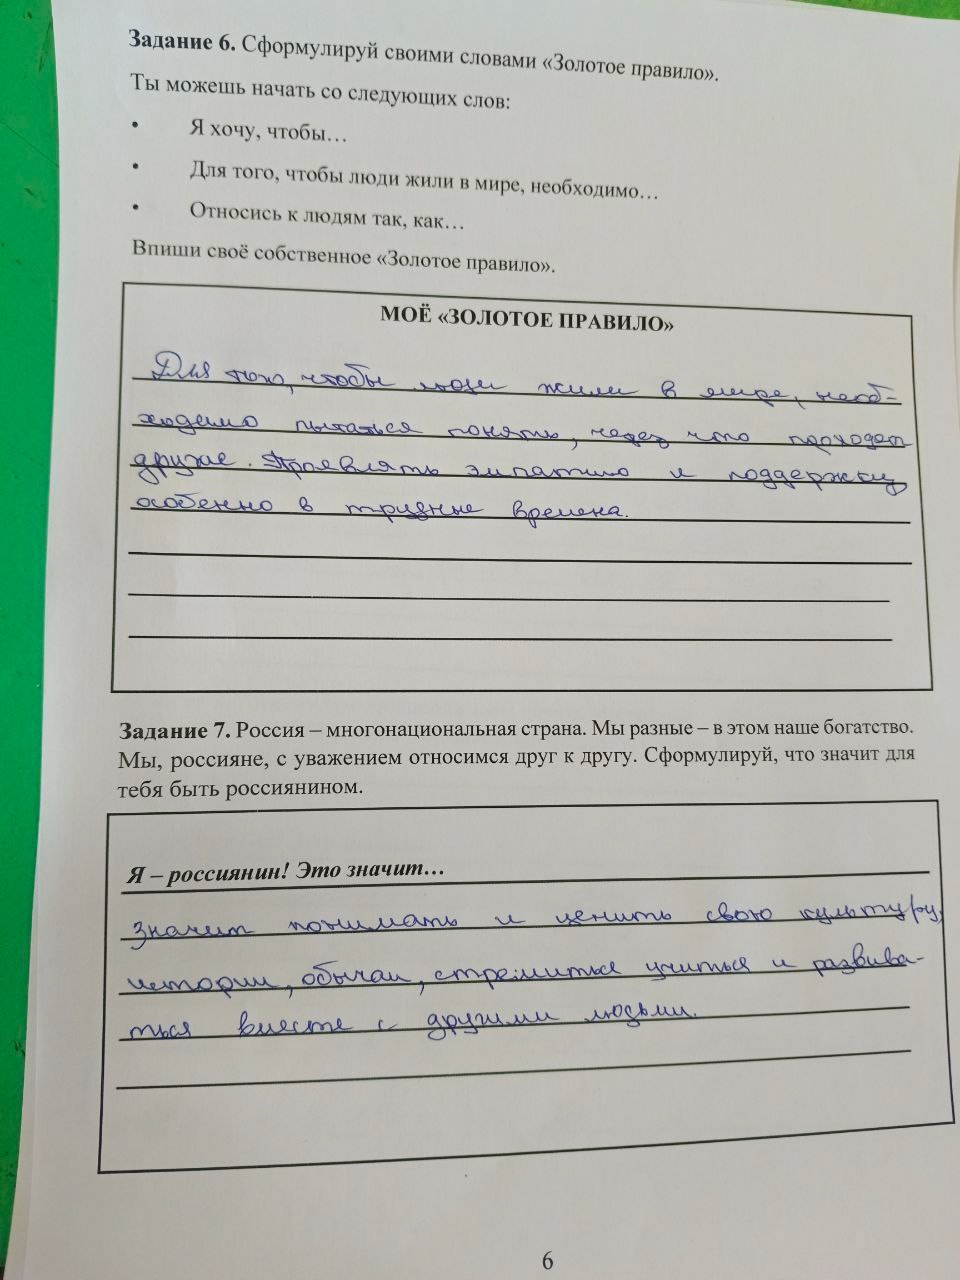 Задание 6. Сформулируй своими словами «Золотое правило».
Ты можешь начать со следующих слов:
• Я хочу, чтобы…
• Для того, чтобы люди жили в мире, необходимо…
• Относись к людям так, как…
Впиши своё собственное «Золотое правило».
МОЁ «ЗОЛОТОЕ ПРАВИЛО»
Для того, чтобы люди жили в мире, необ-
ходимо пытаться понять, через что проходят
другие. Проявлять эмпатию и поддержку
особенно в трудные времена.
Задание 7. Россия – многонациональная страна. Мы разные – в этом наше богатство.
Мы, россияне, с уважением относимся друг к другу. Сформулируй, что значит для
тебя быть россиянином.
Я – россиянин! Это значит…
значит понимать и ценить свою культуру,
истории, обычаи, стремиться учиться и развива-
ться вместе с другими людьми.
6